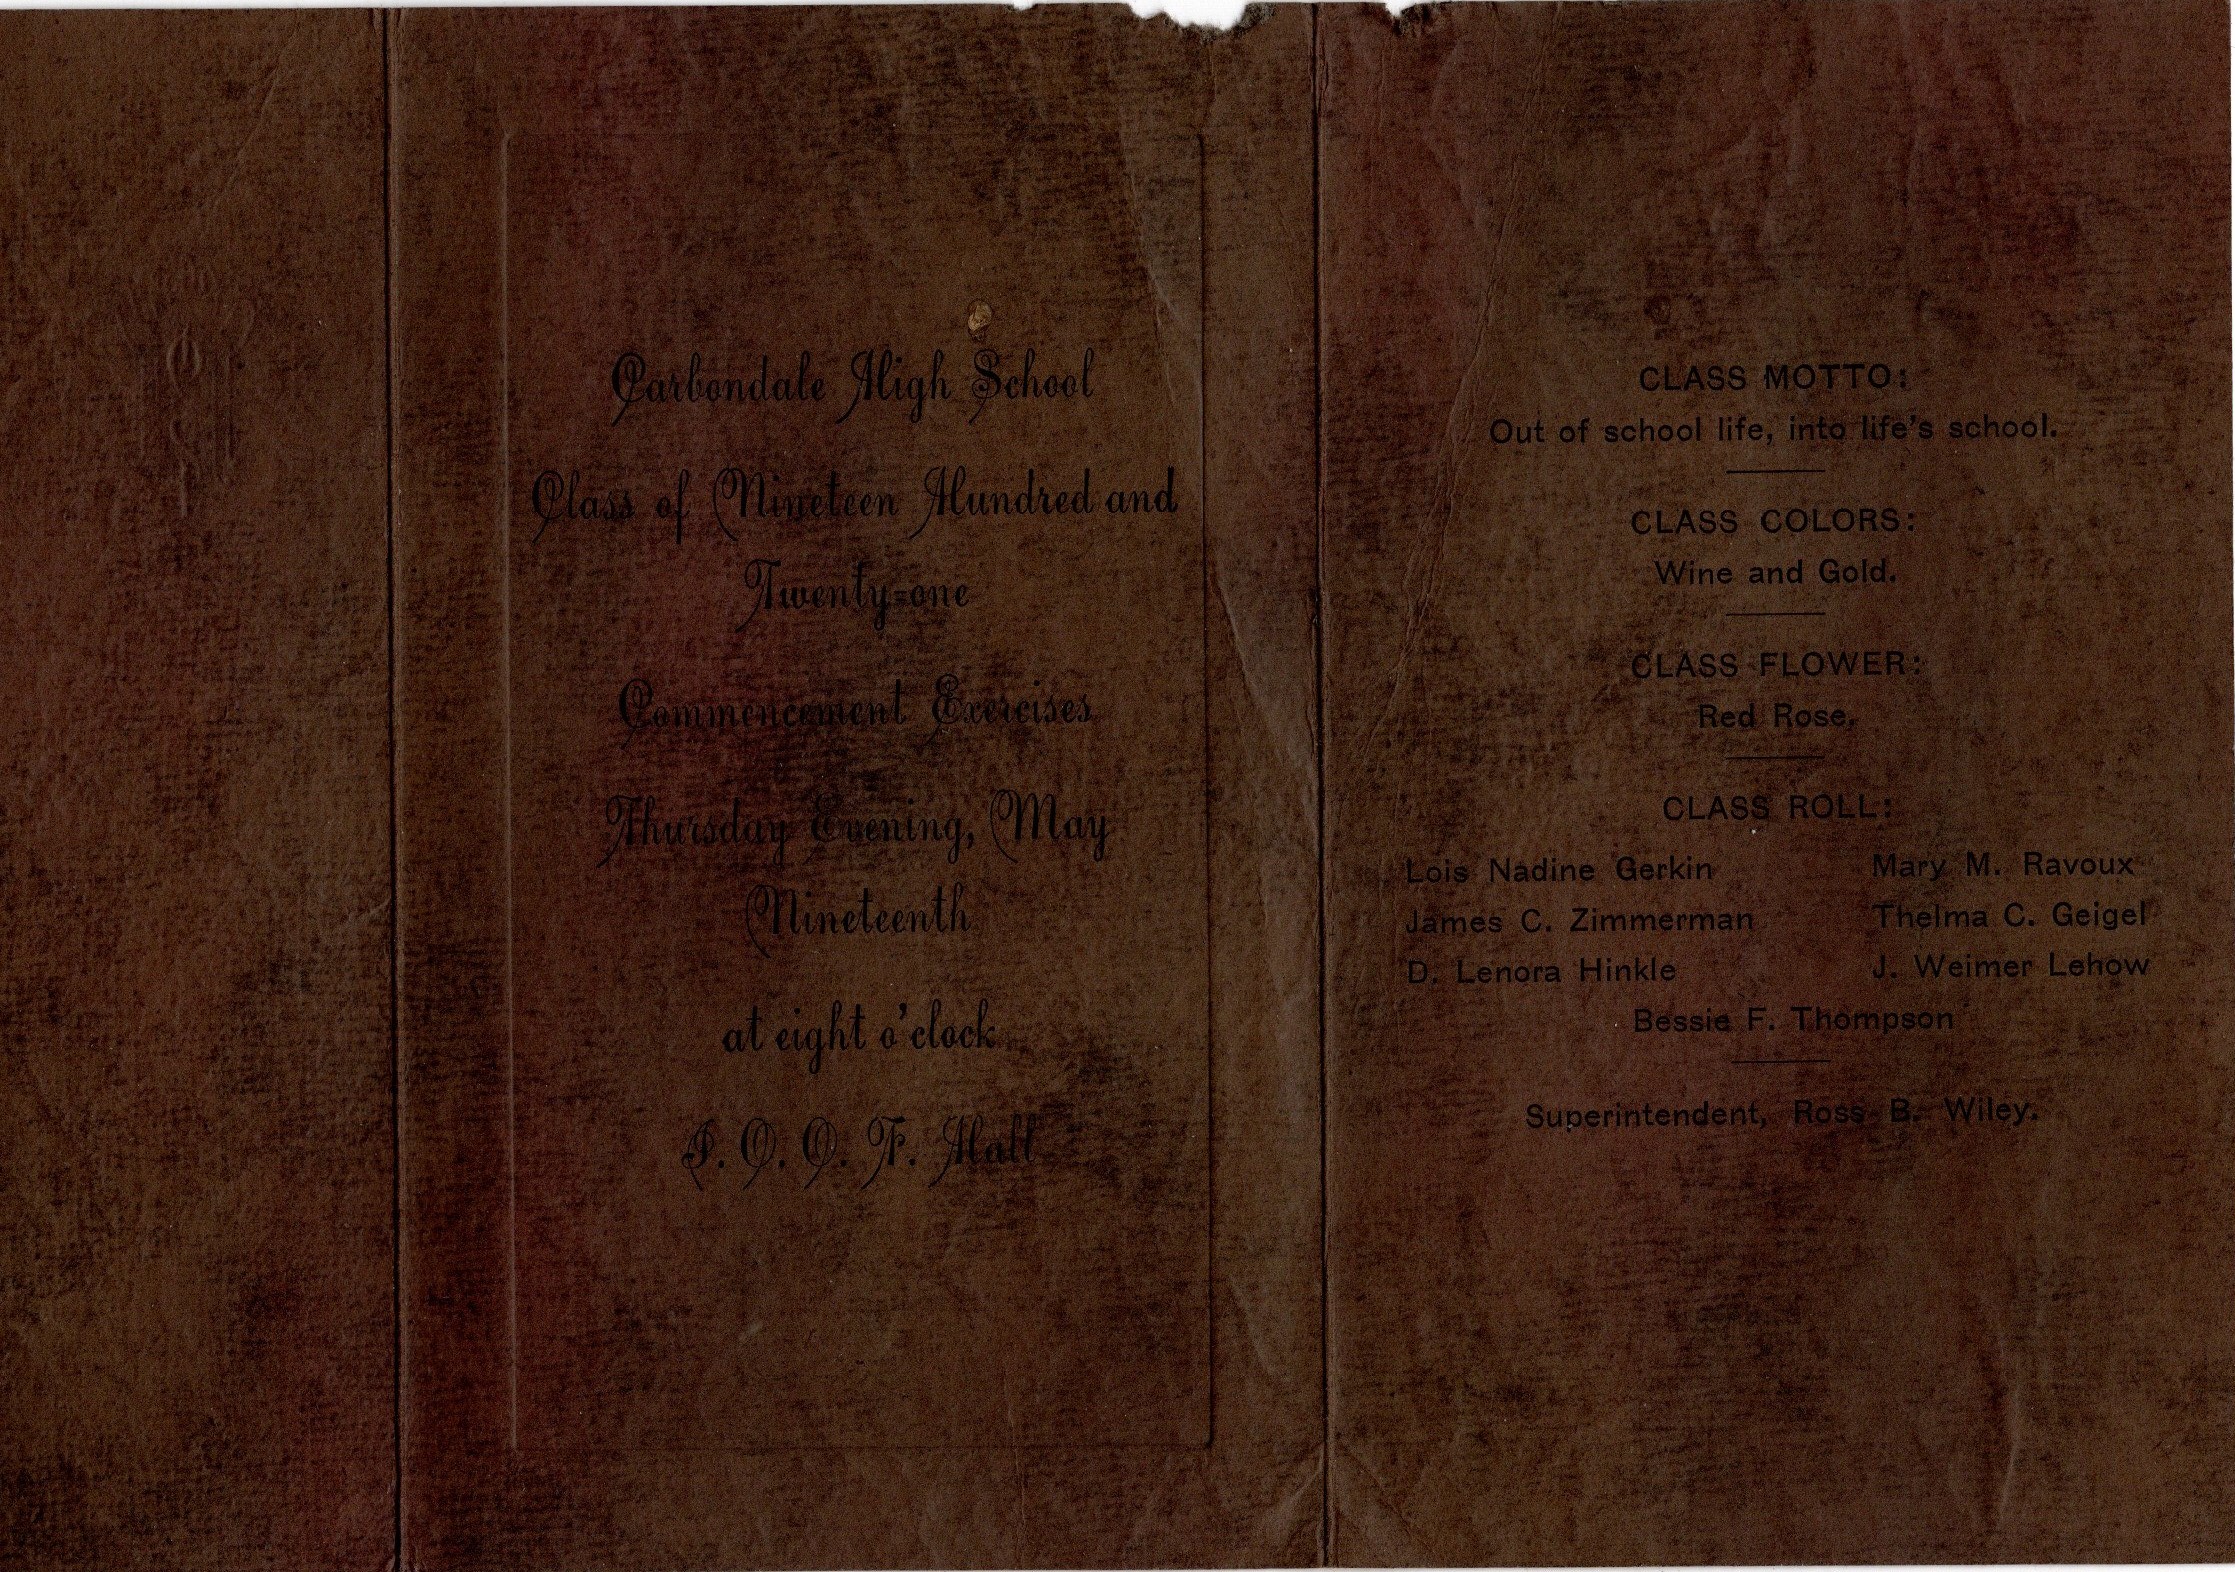 Carbondale High School
Class of Nineteen Hundred and
Twenty=one
Commencement Exercises
Thursday Evening, May
Nineteenth
at eight o'clock
I. O. O. F. Hall
CLASS MOTTO:
Out of school life, into life's school.
CLASS COLORS:
Wine and Gold.
CLASS FLOWER:
Red Rose.
CLASS ROLL:
Lois Nadine Gerkin Mary M. Ravoux
James C. Zimmerman Thelma C. Geigel
D. Lenora Hinkle J. Weimer Lehow
Bessie F. Thompson
Superintendent, Ross B. Wiley.